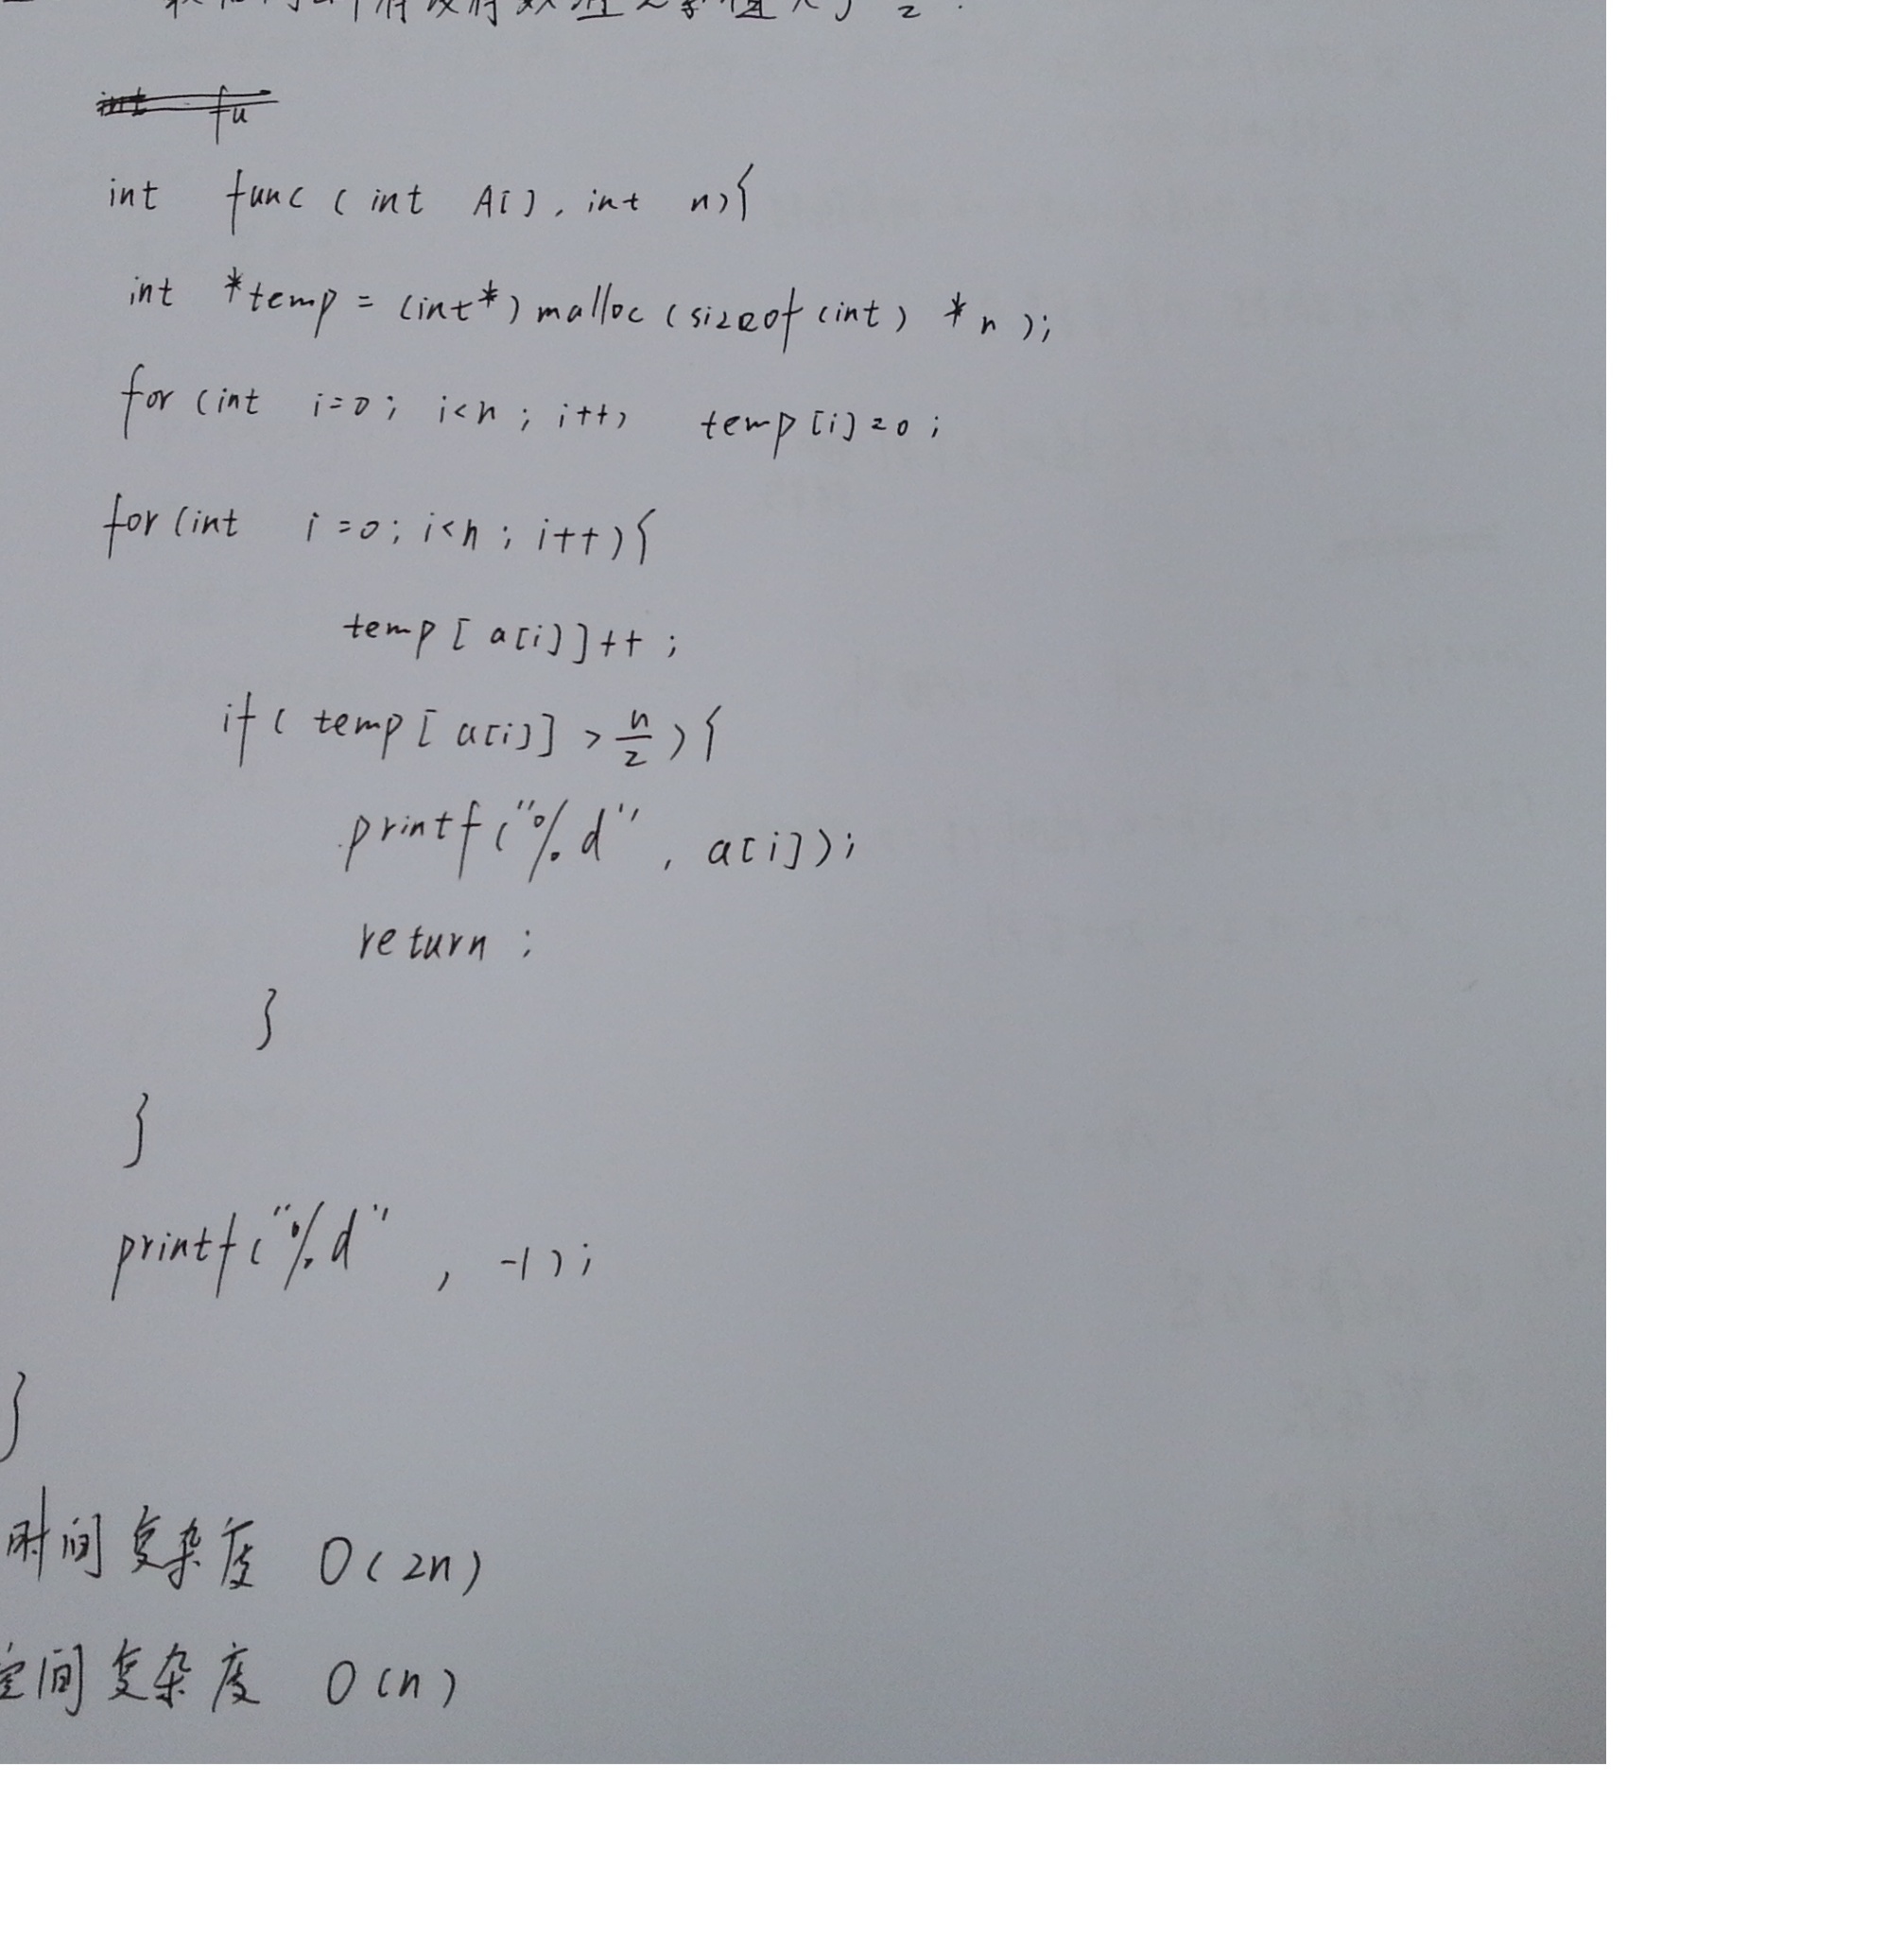 int func ( int A[], int n){
int *temp = (int*) malloc (sizeof (int) * n );
for (int i=0; i<n ; i++) temp[i]=0;
for (int i=0; i<n ; i++){
temp [ a[i]]++ ;
if ( temp [ a[i]] > n/2 ){
printf("%d", a[i]);
return ;
}
}
printf("%d" , -1);
}
时间复杂度 O(2n)
空间复杂度 O(n)